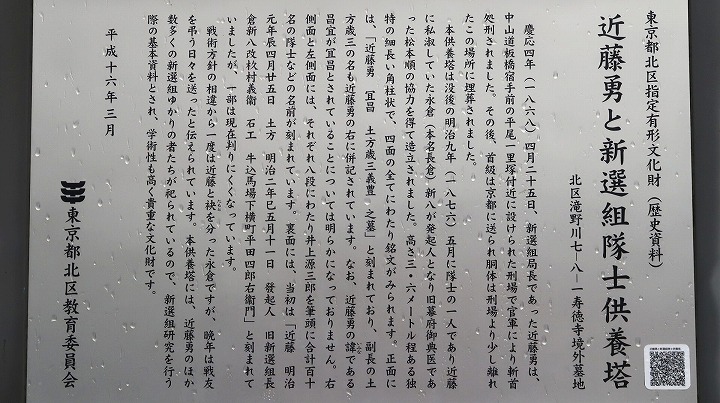 東京都北区指定有形文化財（歴史資料）
近藤勇と新選組隊士供養塔
北区滝野川七－八－一 寿徳寺境外墓地
慶応四年（一八六八）四月二十五日、新選組局長であった近藤勇は、
中山道板橋宿手前の平尾一里塚付近に設けられた刑場で官軍により斬首
処刑されました。その後、首級は京都に送られ胴体は刑場より少し離れ
たこの場所に埋葬されました。
本供養塔は没後の明治九年（一八七六）五月に隊士の一人であり近藤
に私淑していた永倉（本名長倉）新八が発起人となり旧幕府御典医であ
った松本順の協力を得て造立されました。高さ三・六メートル程ある独
特の細長い角柱状で、四面の全てにわたり銘文がみられます。正面に
は、「近藤勇 宜昌 土方歳三義豊 之墓」と刻まれており、副長の土
方歳三の名も近藤勇の右に併記されています。なお、近藤勇の諱である
いみな
昌宜が宜昌とされていることについては明らかになっておりません。右
側面と左側面には、それぞれ八段にわたり井上源三郎を筆頭に合計百十
名の隊士などの名前が刻まれています。裏面には、当初は「近藤 明治
元年辰四月廿五日 土方 明治二年巳五月十一日 發起人 旧新選組長
倉新八改杉村義衛 石工 牛込馬場下横町平田四郎右衛門」と刻まれて
いましたが、一部は現在判りにくくなっています。
戦術方針の相違から一度は近藤と袂を分った永倉ですが、晩年は戦友
を弔う日々を送ったと伝えられています。本供養塔には、近藤勇のほか
数多くの新選組ゆかりの者たちが祀られているので、新選組研究を行う
際の基本資料とされ、学術性も高く貴重な文化財です。
平成十六年三月
東京都北区教育委員会